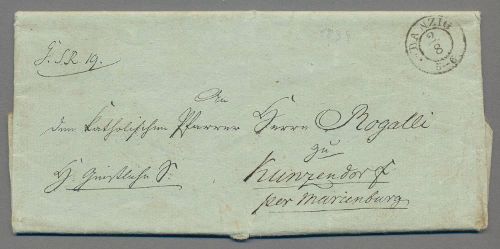 J. S. R. 19.
DANZIG
2/8
5-6
An
den Katholischen Pfarrer Herrn Rogalli
zu
H. Geistliche S:
Kunzendorf
per Marienburg